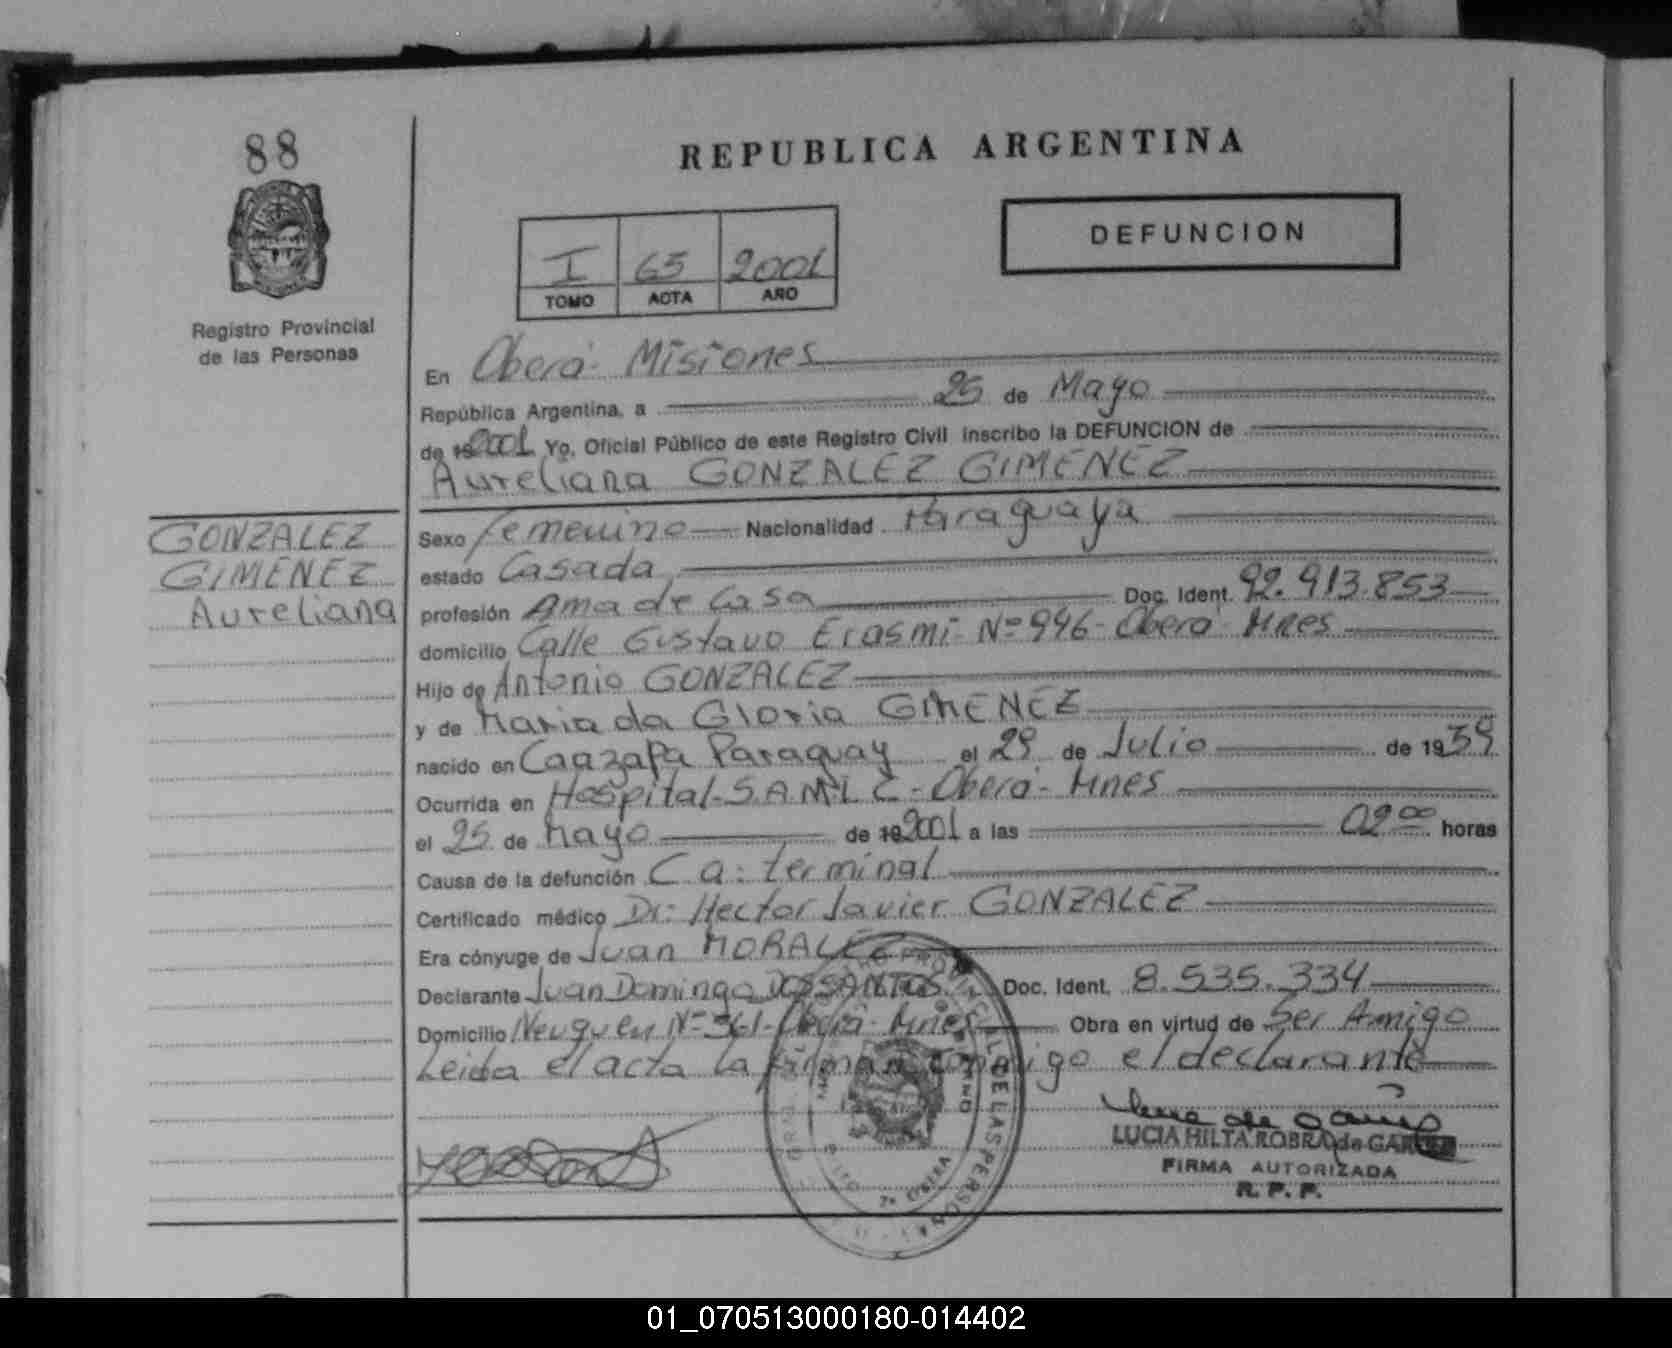 88
REPUBLICA ARGENTINA
DEFUNCION
I 65 2001
TOMO ACTA AÑO
Registro Provincial
de las Personas
En Oberá - Misiones
República Argentina, a 25 de Mayo
de 19 2001 Yo, Oficial Público de este Registro Civil inscribo la DEFUNCION de
Aureliana GONZALEZ GIMENEZ
GONZALEZ
GIMENEZ
Aureliana
Sexo femenino Nacionalidad Paraguaya
estado Casada
profesión Ama de Casa Doc. Ident. 92.913.853
domicilio Calle Gustavo Erasmi - Nº 996 - Oberá - Mnes
Hijo de Antonio GONZALEZ
y de Maria da Gloria GIMENEZ
nacido en Caazapa Paraguay el 29 de Julio de 19
Ocurrida en Hospital - S.A.M.I.C - Oberá - Mnes
el 25 de Mayo de 19 2001 a las 02 00 horas
Causa de la defunción C a: terminal
Certificado médico Dr: Hector Javier GONZALEZ
Era cónyuge de Juan MORALEZ
Declarante Juan Domingo DOSSANTOS Doc. Ident. 8.535.334
Domicilio Neuquen Nº 561 - Oberá - Mnes Obra en virtud de Ser Amigo
Leida el acta la firman conmigo el declarante
LUCIA HILTA ROBRA de
FIRMA AUTORIZADA
R. P. P.
01_070513000180-014402